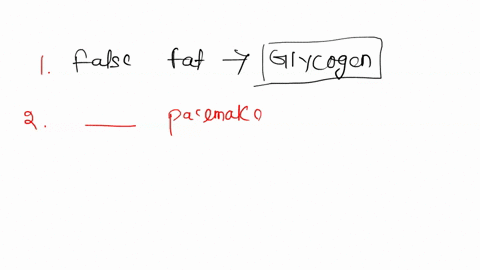 1. false fat → Glycogen
2. ___ pacemake